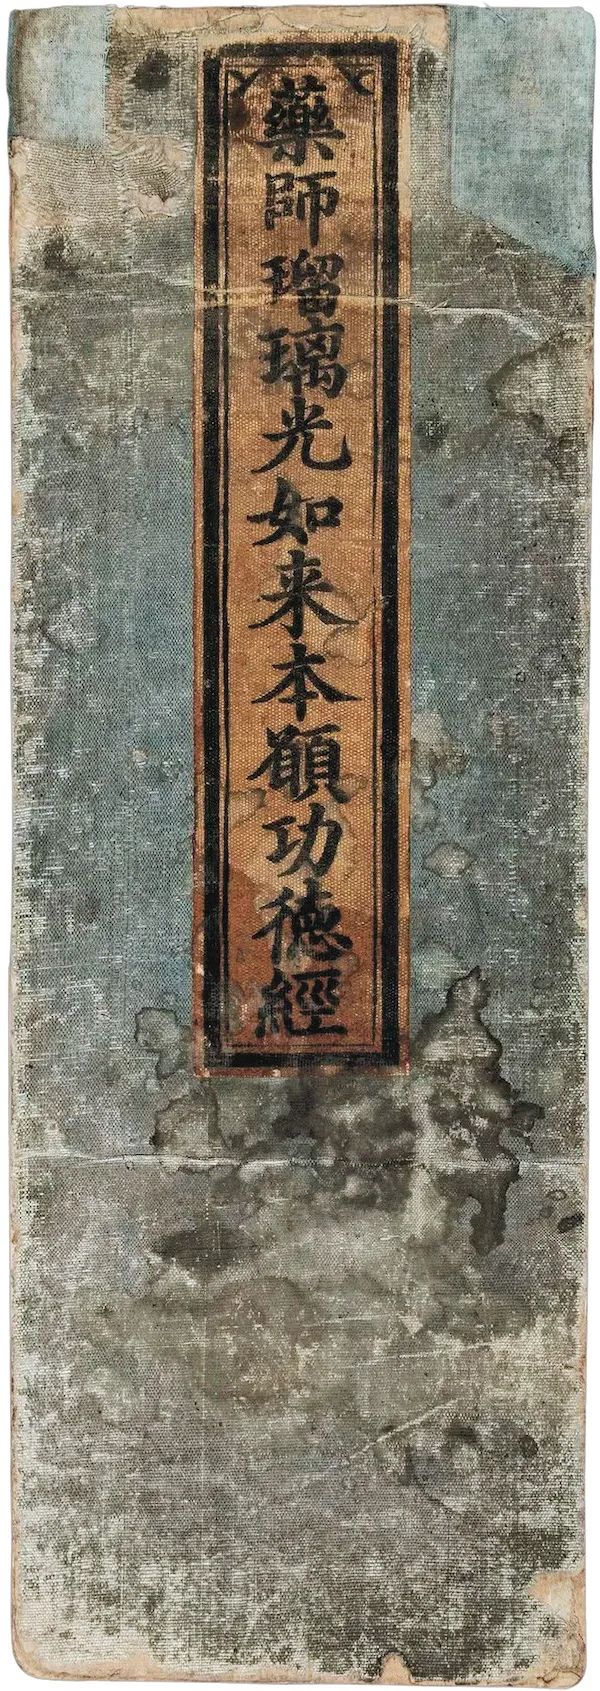 藥師瑠璃光如来本願功徳經